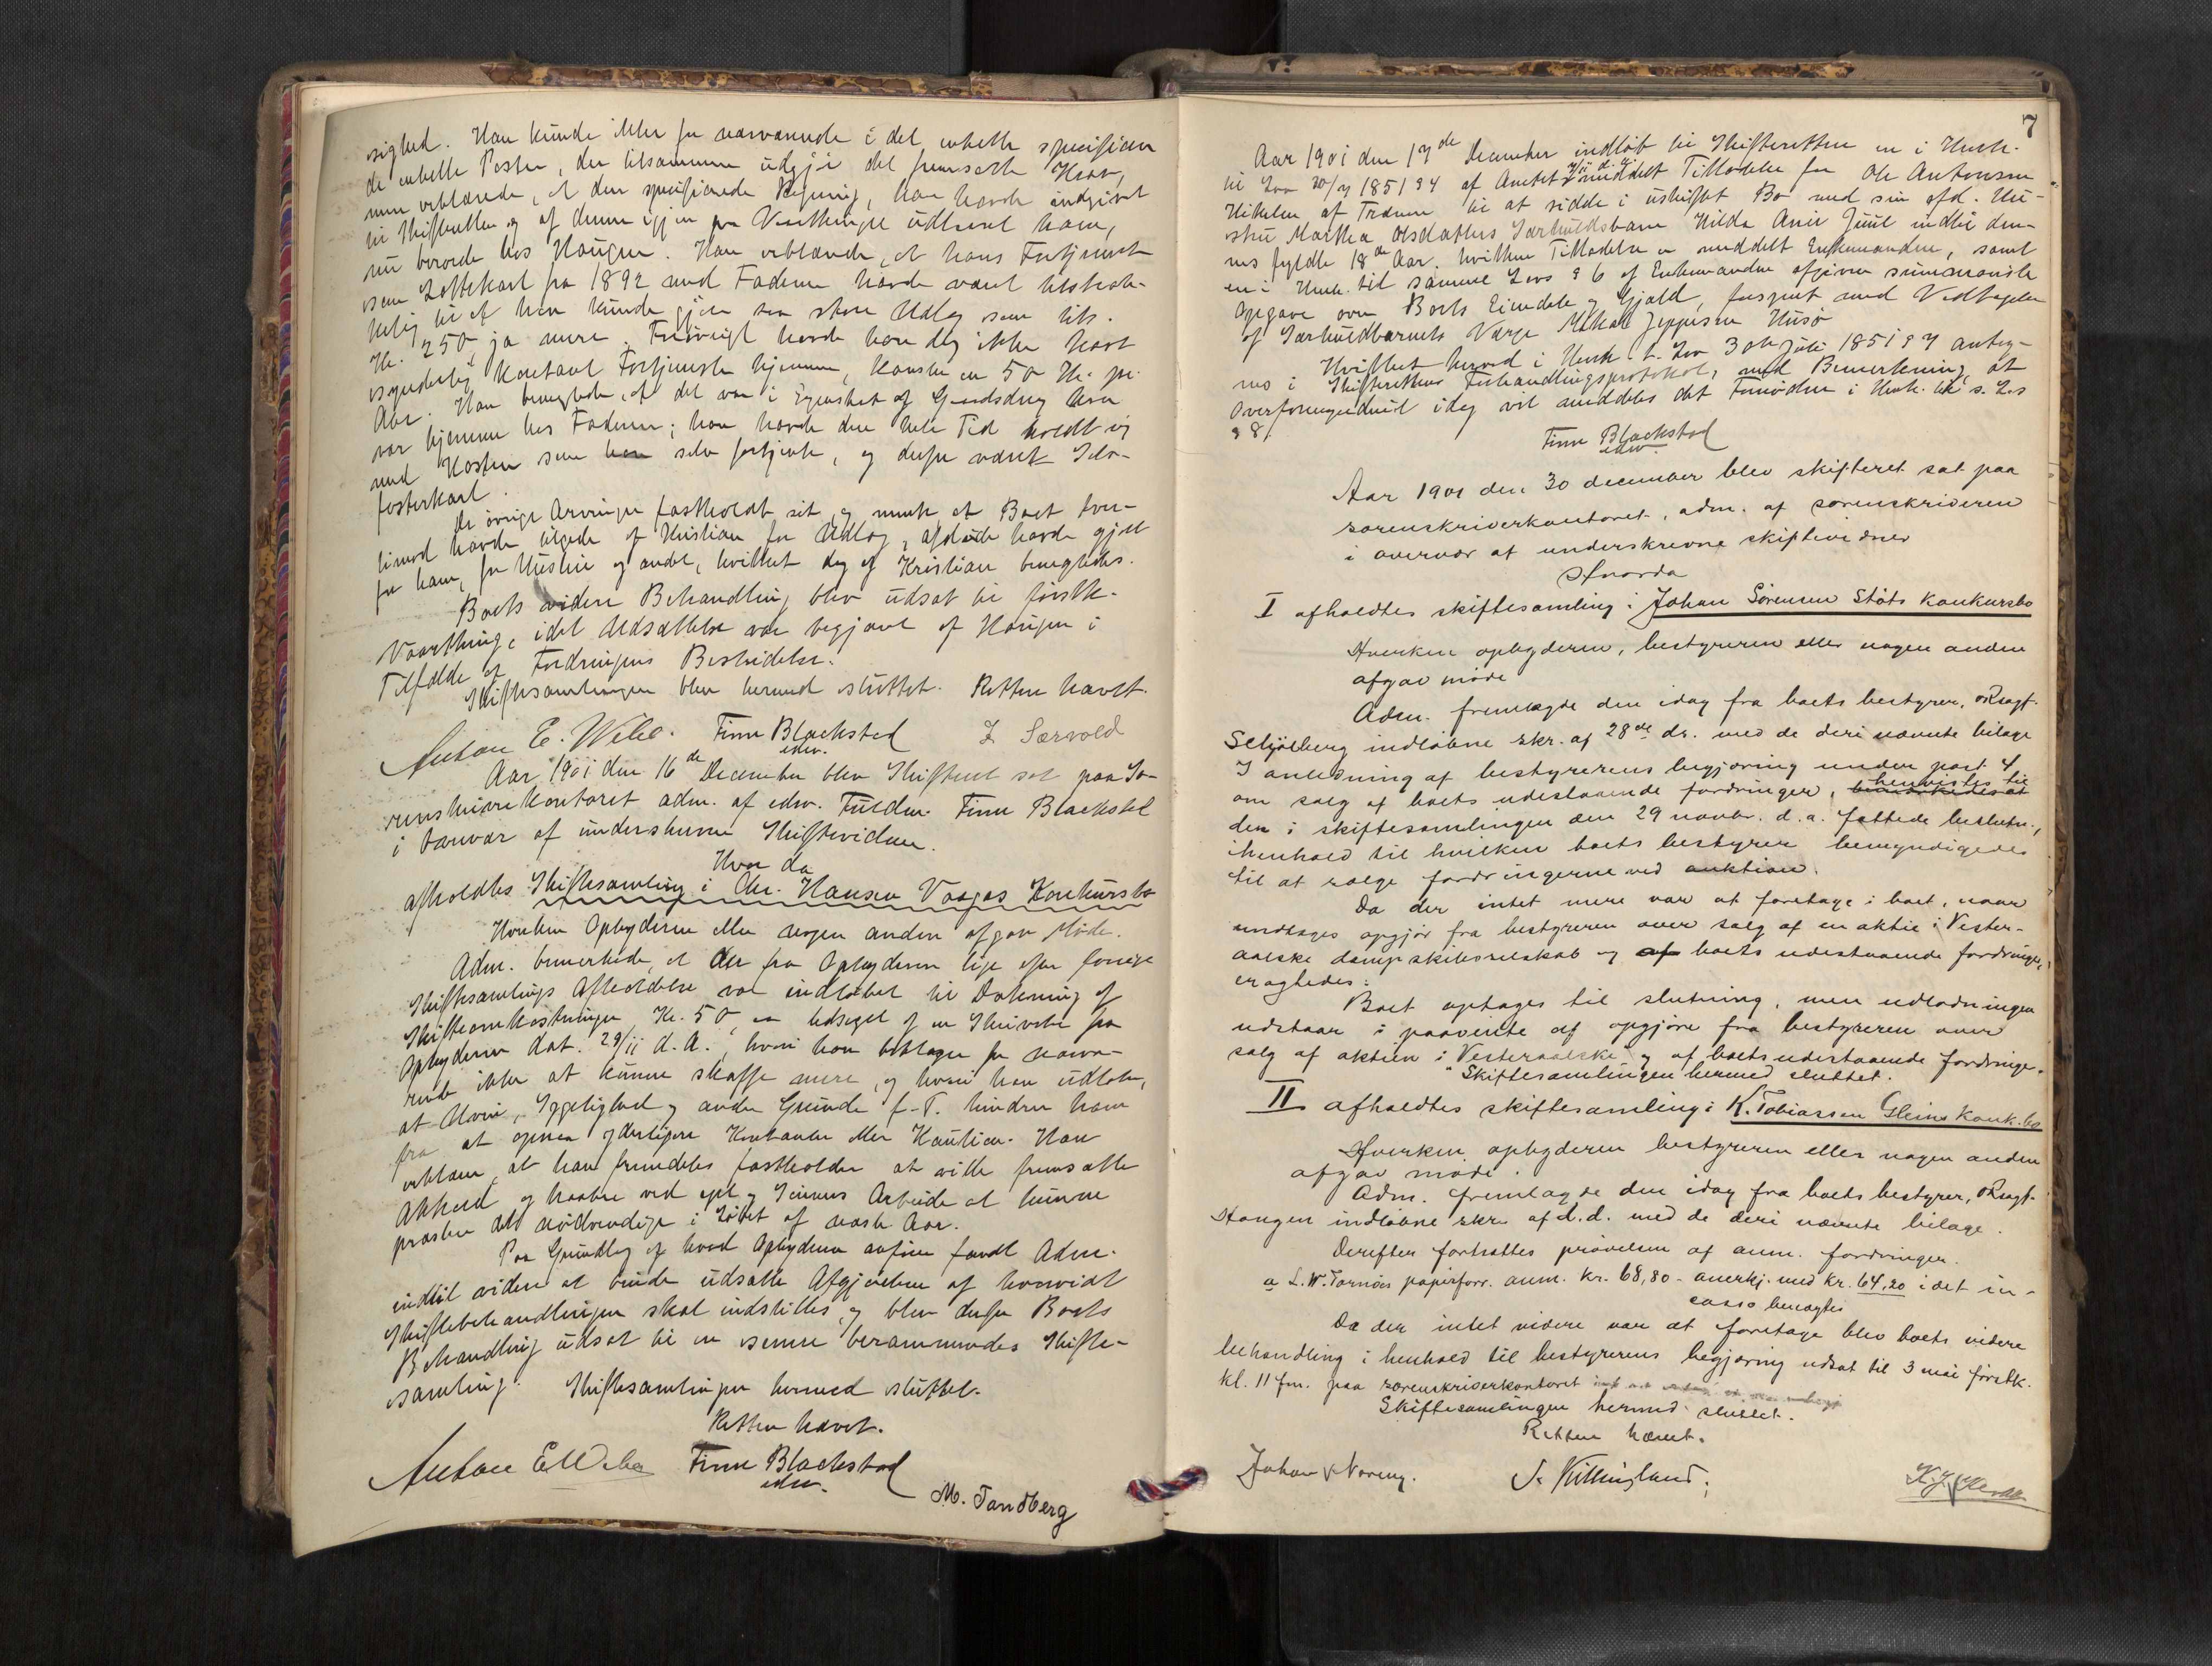 sighed. Han kunde ikke for nærværende i det enkelte specificere
de enkelte Poster, der tilsammen udgjør det fremsatte Krav,
men erklærede, at den specificerede Regning, han havde indgivet
til Skifteretten og af denne igjen paa Vaarthinget udleveret ham,
nu beroede hos Haugen. Han erklærede, at hans Fortjeneste
som Lottekarl fra 1892 med Faderen havde været tilstræk-
kelig til at han kunde gjøre saa store Udlæg som tils.
Kr. 250, ja mere. Forøvrigt havde han dog ikke havt
synderlig kontant Fortjeneste hjemme, kanske en 50 Kr. pr.
Aar. Han benegtede, at det var i Egenskab af Gaardsdreng han
var hjemme hos Faderen; han havde den hele Tid holdt sig
med Kosten som han selv fortjente, og derfor været Selv-
fosterkarl.
De øvrige Arvinger fastholdt sit, og mente at Boet tver-
timod havde tilgode af Kristian for Udlæg, afdøde havde gjort
for ham, for Husleie og andet, hvilket dog af Kristian benegtedes.
Boets videre Behandling blev udsat til førstk.
Vaarthing, idet Udsættelse var begjært af Haugen i
Tilfælde af Fordringens Bestridelse.
Skiftesamlingen blev hermed sluttet. Retten hævet.
Anton E. Wibe. Finn Blackstad J. Særvold
edsv.
Aar 1901 den 16de December blev Skifteret sat paa So-
renskriverkontoret adm. af edsv. Fuldm. Finn Blackstad
i Overvær af underskrevne Skiftevidner.
Hvor da
afholdtes Skiftesamling i Chr. Hansen Vaages Konkursbo
Hverken Opbyderen eller nogen anden afgav Møde.
Adm. bemerkede, at der fra Opbyderen lige efter forrige
Skiftesamlings Afholdelse var indløbet til Dækning af
Skifteomkostninger Kr. 50, en ledsaget af en Skrivelse fra
Opbyderen dat. 29/11 d. A., hvori han beklager for nærvæ-
rende ikke at kunne skaffe mere, og hvori han udtaler,
at Uveir, Sygelighed og andre Grunde f. T. hindrer ham
fra at opnaa yderligere Kontanter eller Kaution. Han
erklærer, at han fremdeles fastholder at ville fremsætte
Akkord og haaber ved eget og Sønners Arbeide at kunne
præstere det nødvendige i Løbet af næste Aar.
Paa Grundlag af hvad Opbyderen anfører fandt Adm.
indtil videre at burde udsætte Afgjørelsen af hvorvidt
Skiftebehandlingen skal indstilles, og blev derfor Boets
Behandling udsat til en senere berammendes Skifte-
samling. Skiftesamlingen hermed sluttet.
Retten hævet.
Anton E Wibe Finn Blackstad
edsv.
M. Tandberg
7
Aar 1901 den 17de December indløb til Skifteretten en i Henh.
til Lov 30/7 1851 § 4 af Amtet 7/12 d. A. meddelt Tilladelse for Ole Antonsen
af Trænen til at sidde i uskiftet Bo med sin afd. Hu-
stru Martha Olsdatters Særkuldsbarn Hilda Anie Juul indtil den-
nes fyldte 18de Aar, hvilken Tilladelse er meddelt Enkemanden, samt
en i Henh. til samme Lovs § 6 af Enkemanden afgiven summarisk
Opgave over Boets Eiendele og Gjæld, forsynet med Vedtagelse
af Særkuldbarnets Værge Mikal Jeppesen Husø
Hvilket herved i Henh. t. Lov 30te Juli 1851 § 7 anteg-
nes i Skifterettens Forhandlingsprotokol, med Bemerkning, at
Overformynderiet idag vil meddeles det Fornødne i Henh. til s. Ls
§ 8.
Finn Blackstad
edsv.
Aar 1901 den 30 december blev skifteret sat paa
sorenskriverkontoret, adm. af sorenskriveren
i overvær af underskrevne skiftevidner
Hvorda
I afholdtes skiftesamling i Johan Sørensen Støts konkursbo
Hverken opbyderen, bestyreren eller nogen anden
afgav møde
Adm. fremlagde den idag fra boets bestyrer, ORsagf.
Schjølberg indløbne skr. af 28de ds. med de deri nævnte bilage
I anledning af bestyrerens begjæring under post 4
om salg af boets udestaaende fordringer, henvistes til
den i skiftesamlingen den 29 novbr. d. a. fattede beslutn.,
ihenhold til hvilken boets bestyrer bemyndigedes
til at sælge fordringerne ved auktion.
Da der intet mere var at foretage i boet, naar
undtages opgjør fra bestyreren over salg af en aktie i Vester-
aalske dampskibsselskab og af boets udestaaende fordringer,
eragtedes:
Boet optages til slutning, men udlodningen
udstaar i paavente af opgjøre fra bestyreren over
salg af aktien i "Vesteraalske" og af boets udestaaende fordringe.
Skiftesamlingen hermed sluttet.
II afholdtes skiftesamling i K. Tobiassen Gleins konk.bo
Hverken opbyderen bestyreren eller nogen anden
afgav møde.
Adm. fremlagde den idag fra boets bestyrer, ORsagf.
Haugen indløbne skr. af d.d. med de deri nævnte bilage.
Derefter fortsattes prøvelsen af anm. fordringer.
a L. W. Tornøes papirforr. anm. kr. 68,80 - anerkj. med kr. 64,20 idet in-
casso benægtes
Da der intet videre var at foretage blev boets videre
behandling i henhold til bestyrerens begjæring udsat til 3 mai førstk.
kl. 11 fm. paa sorenskriverkontoret
Skiftesamlingen hermed sluttet.
Retten hævet.
Johan Noreng. S. Killingland.